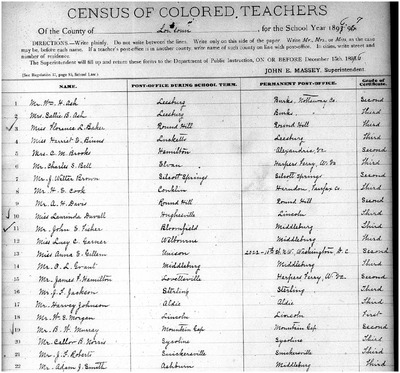 CENSUS OF COLORED TEACHERS
Of the County of Loudoun, for the School Year 1896-7
DIRECTIONS—Write plainly. Do not write between the lines. Write only on this side of the paper. Write Mr., Mrs., or Miss, as the case
may be, before each name. If a teacher's post-office is in another county, write name of such county on line with post-office. In cities, write street and
number of residence.
The Superintendent will fill up and return these forms to the Department of Public Instruction, ON OR BEFORE December 15th, 1896
JOHN E. MASSEY, Superintendent.
NAME. POST-OFFICE DURING SCHOOL TERM. PERMANENT POST-OFFICE. Grade of Certificate.
1 Mr. Wm. H. Ash Leesburg Burks, Nottoway Co. Second
2 Mrs. Sallie B. Ash Leesburg Burks " Third
3 Miss Florence L. Baker Round Hill Round Hill Third
4 Miss Harriet E. Binns Lucketts Leesburg Third
5 Mrs. C. M. Brooks Hamilton Alexandria, Va Second
6 Mr. Charles S. Bell Elvan Harpers Ferry, W. Va Third
7 Mr. J. Walter Brown Silcott Springs Silcott Springs Second
8 Mr. H. E. Cook Conklin Herndon, Fairfax Co. Third
9 Mr. A. H. Davis Round Hill Round Hill Second
10 Miss Lavinda Duvall Hughesville Lincoln Third
11 Mr. John E. Fisher Bloomfield Middleburg Third
12 Miss Lucy C. Garner Welbourne Middleburg Third
13 Miss Anna E. Gillem Unison N.W. Washington, D.C Second
14 Mr. O. L. Grant Middleburg Middleburg Third
15 Mr. James F. Hamilton Lovettsville Harpers Ferry, W. Va. Second
16 Mr. J. F. Jackson Sterling Sterling Third
17 Mr. Harvey Johnson Aldie Aldie Third
18 Mr. W. E. Morgan Lincoln Lincoln First
19 Mr. B. W. Murray Mountain Gap Mountain Gap Second
20 Mr. Callor B. Norris Sycoline Sycoline Third
21 Mr. J. F. Roberts Snickersville Snickersville Third
22 Mr. Adam J. Smith Ashburn Middleburg Third